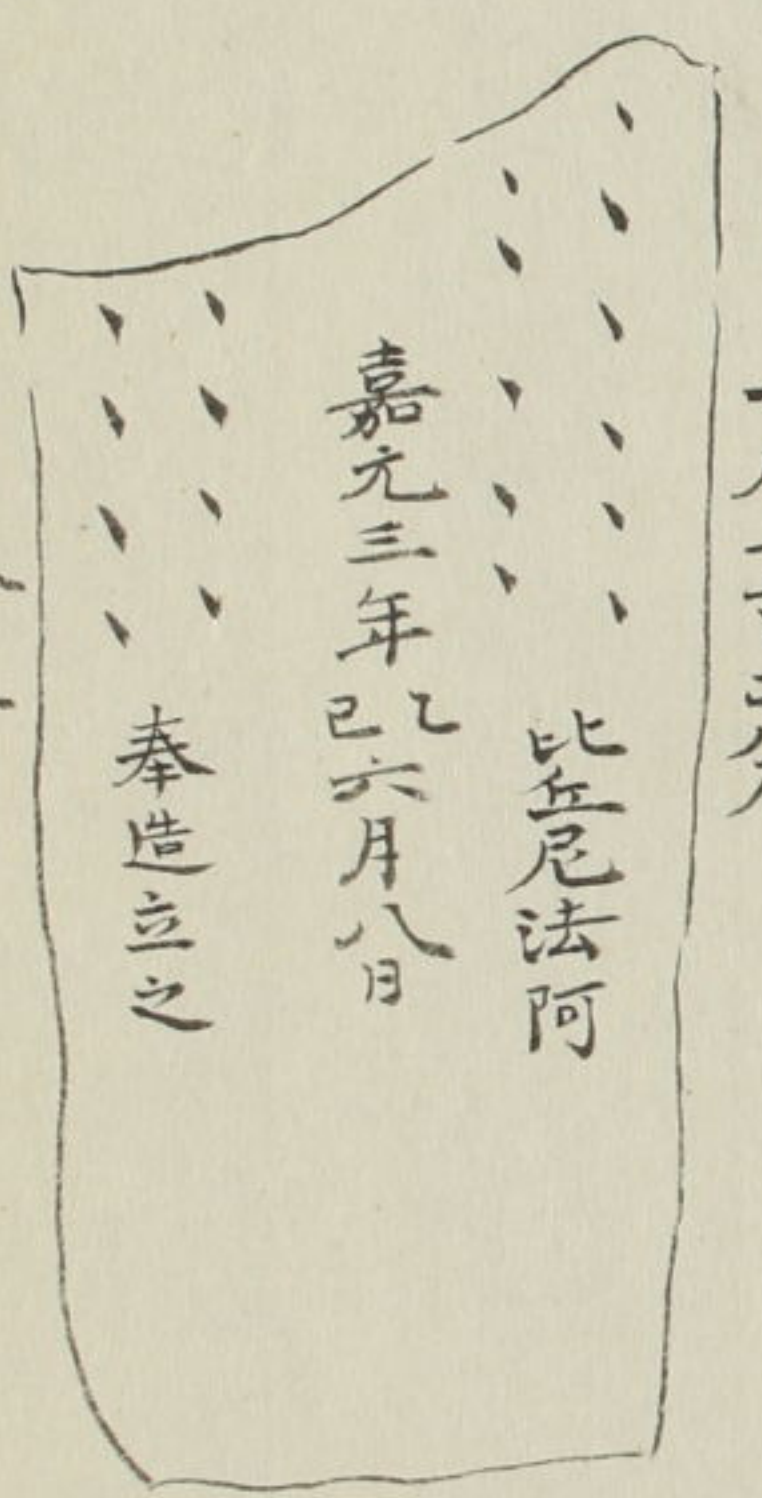 比丘尼法阿
嘉元三年乙巳六月八日
奉造立之